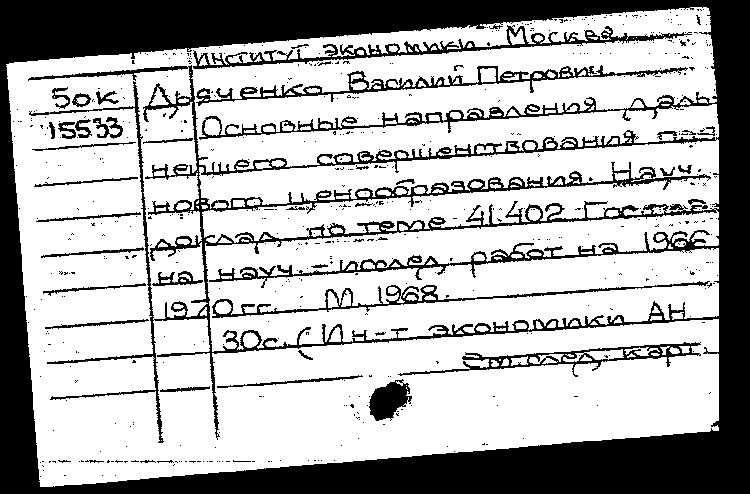 Институт экономики. Москва.
50к Дьяченко, Василий Петрович.
15533 Основные направления даль-
нейшего совершенствования пла-
нового ценообразования. Науч.
доклад по теме 41.402 Госпла-
на науч.-исслед. работ на 1966
1970 гг. М., 1968.
30с. (Ин-т экономики АН
См. след. карт.